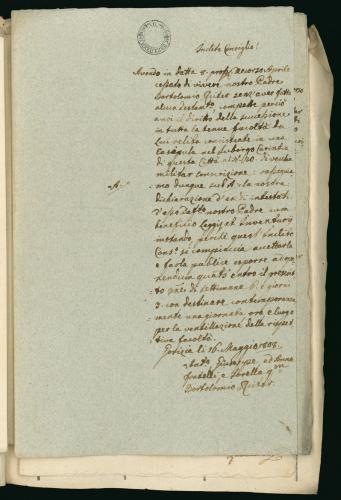 Inclito Consiglio!
Avendo in datta 8. pross. decorzo Aprile
cessato di vivere nostro Padre
Bartolomio senz'aver fatto
alcun compette perciò
a noi il diritto della successione
in tutta la tenue facoltà da
Lui relitta consistente in una
casupula nel Suborgo Carintia
di questa Città al N.° di vecchia
militar conscrizione; rassegna
mo dunque sub A la nostra
-A-
dichiarazione d'eredi intestati
d'esso datto nostro Padre cum
beneficio Leggis et Inventarij
instando, perchè quest'Inclito
Cons.° si compiaccia accettarla
e farla publice esporre ad
endum quanto entro il
to di settimane 6. e giorni
3. con destinare contemporanea
mente una giornata ora e luogo
per la ventillazione della rispet
tiva facoltà.
Gorizia li 16 Maggio 1808.
Giuseppe ed Anna
fratelli e Sorella qm
Bartolomio